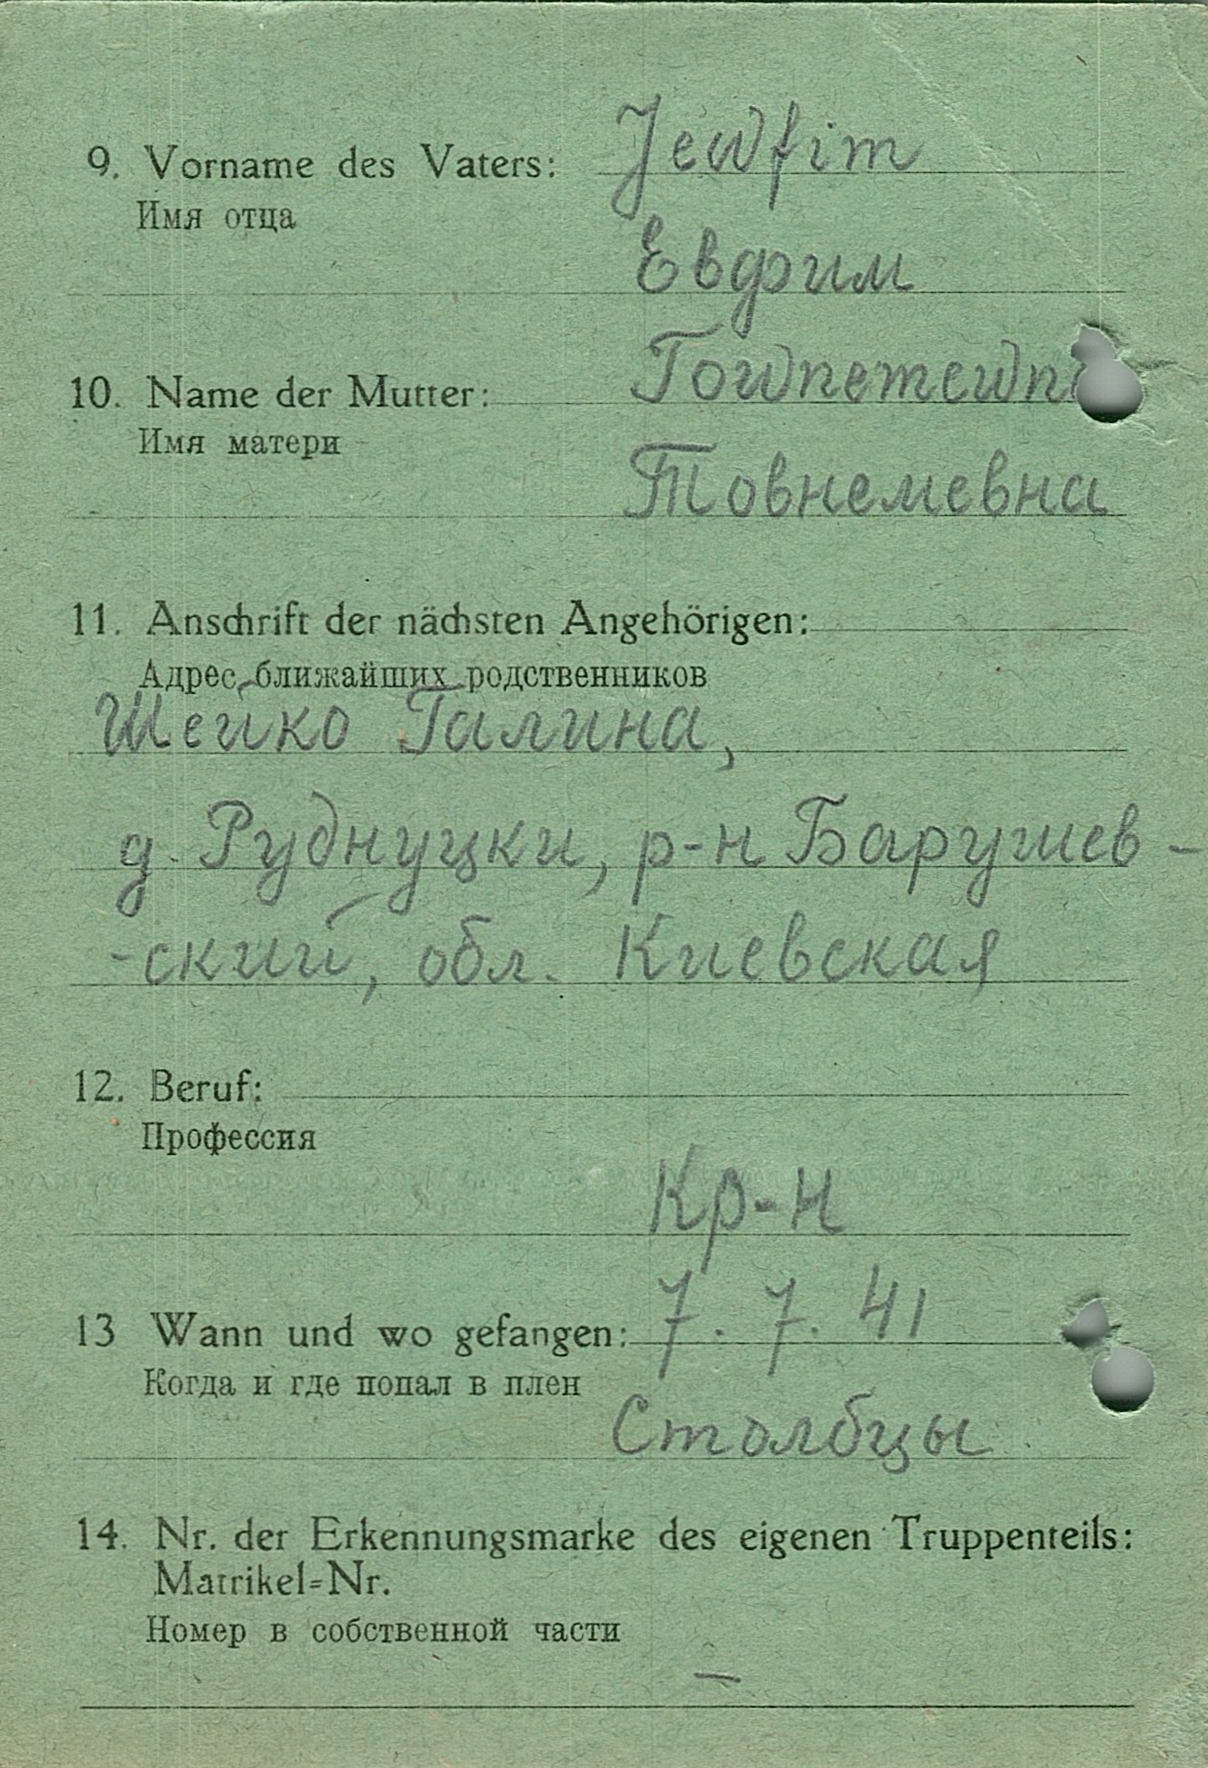 9. Vorname des Vaters: Jewfim
Имя отца
Евфим
10. Name der Mutter:
Имя матери
Товнемевна
11. Anschrift der nächsten Angehörigen:
Адрес ближайших родственников
Шейко Галина,
д. Руднуцки, р-н Барушев-
-ский, обл. Киевская
12. Beruf:
Профессия
Кр-н
13 Wann und wo gefangen: 7. 7. 41
Когда и где попал в плен
Столбцы
14. Nr. der Erkennungsmarke des eigenen Truppenteils:
Matrikel=Nr.
Номер в собственной части
—